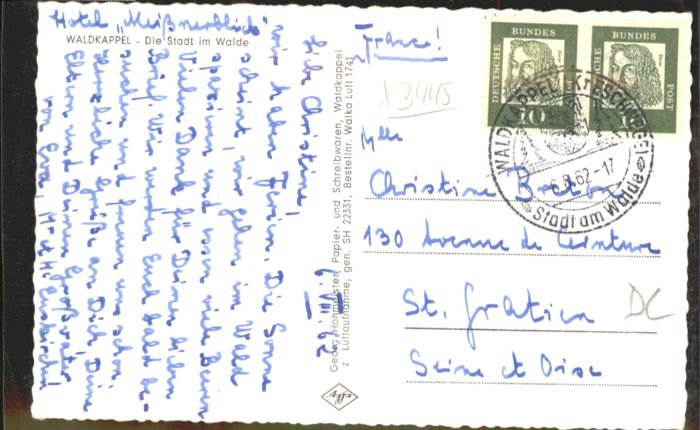 Hotel „Meißnerblick"
WALDKAPPEL - Die Stadt im Walde
6. VIII. 62
Liebe Christine!
wir haben Ferien. Die Sonne
scheint, wir gehen im Wald
spazieren und essen viele Beeren
Vielen Dank für Deinen lieben
Brief. Wir werden Euch bald be-
suchen und freuen uns schon.
Herzliche Grüße an Dich, Deine
Eltern und Deinen Großvater
von
Georg Honmeister, Papier- und Schreibwaren, Waldkappel
z Luftaufnahme, gen. SH 22331, Bestellnr. Walka Luft 1741
Agfa
France!
X3445
DEUTSCHE BUNDESPOST
10
DEUTSCHE BUNDESPOST
10
WALDKAPPEL KR. ESCHWEGE
6.8.62-17
Stadt am Walde
Mlle
Christine
130 Avenue de Ceinture
St. Gratien
DC
Seine et Oise